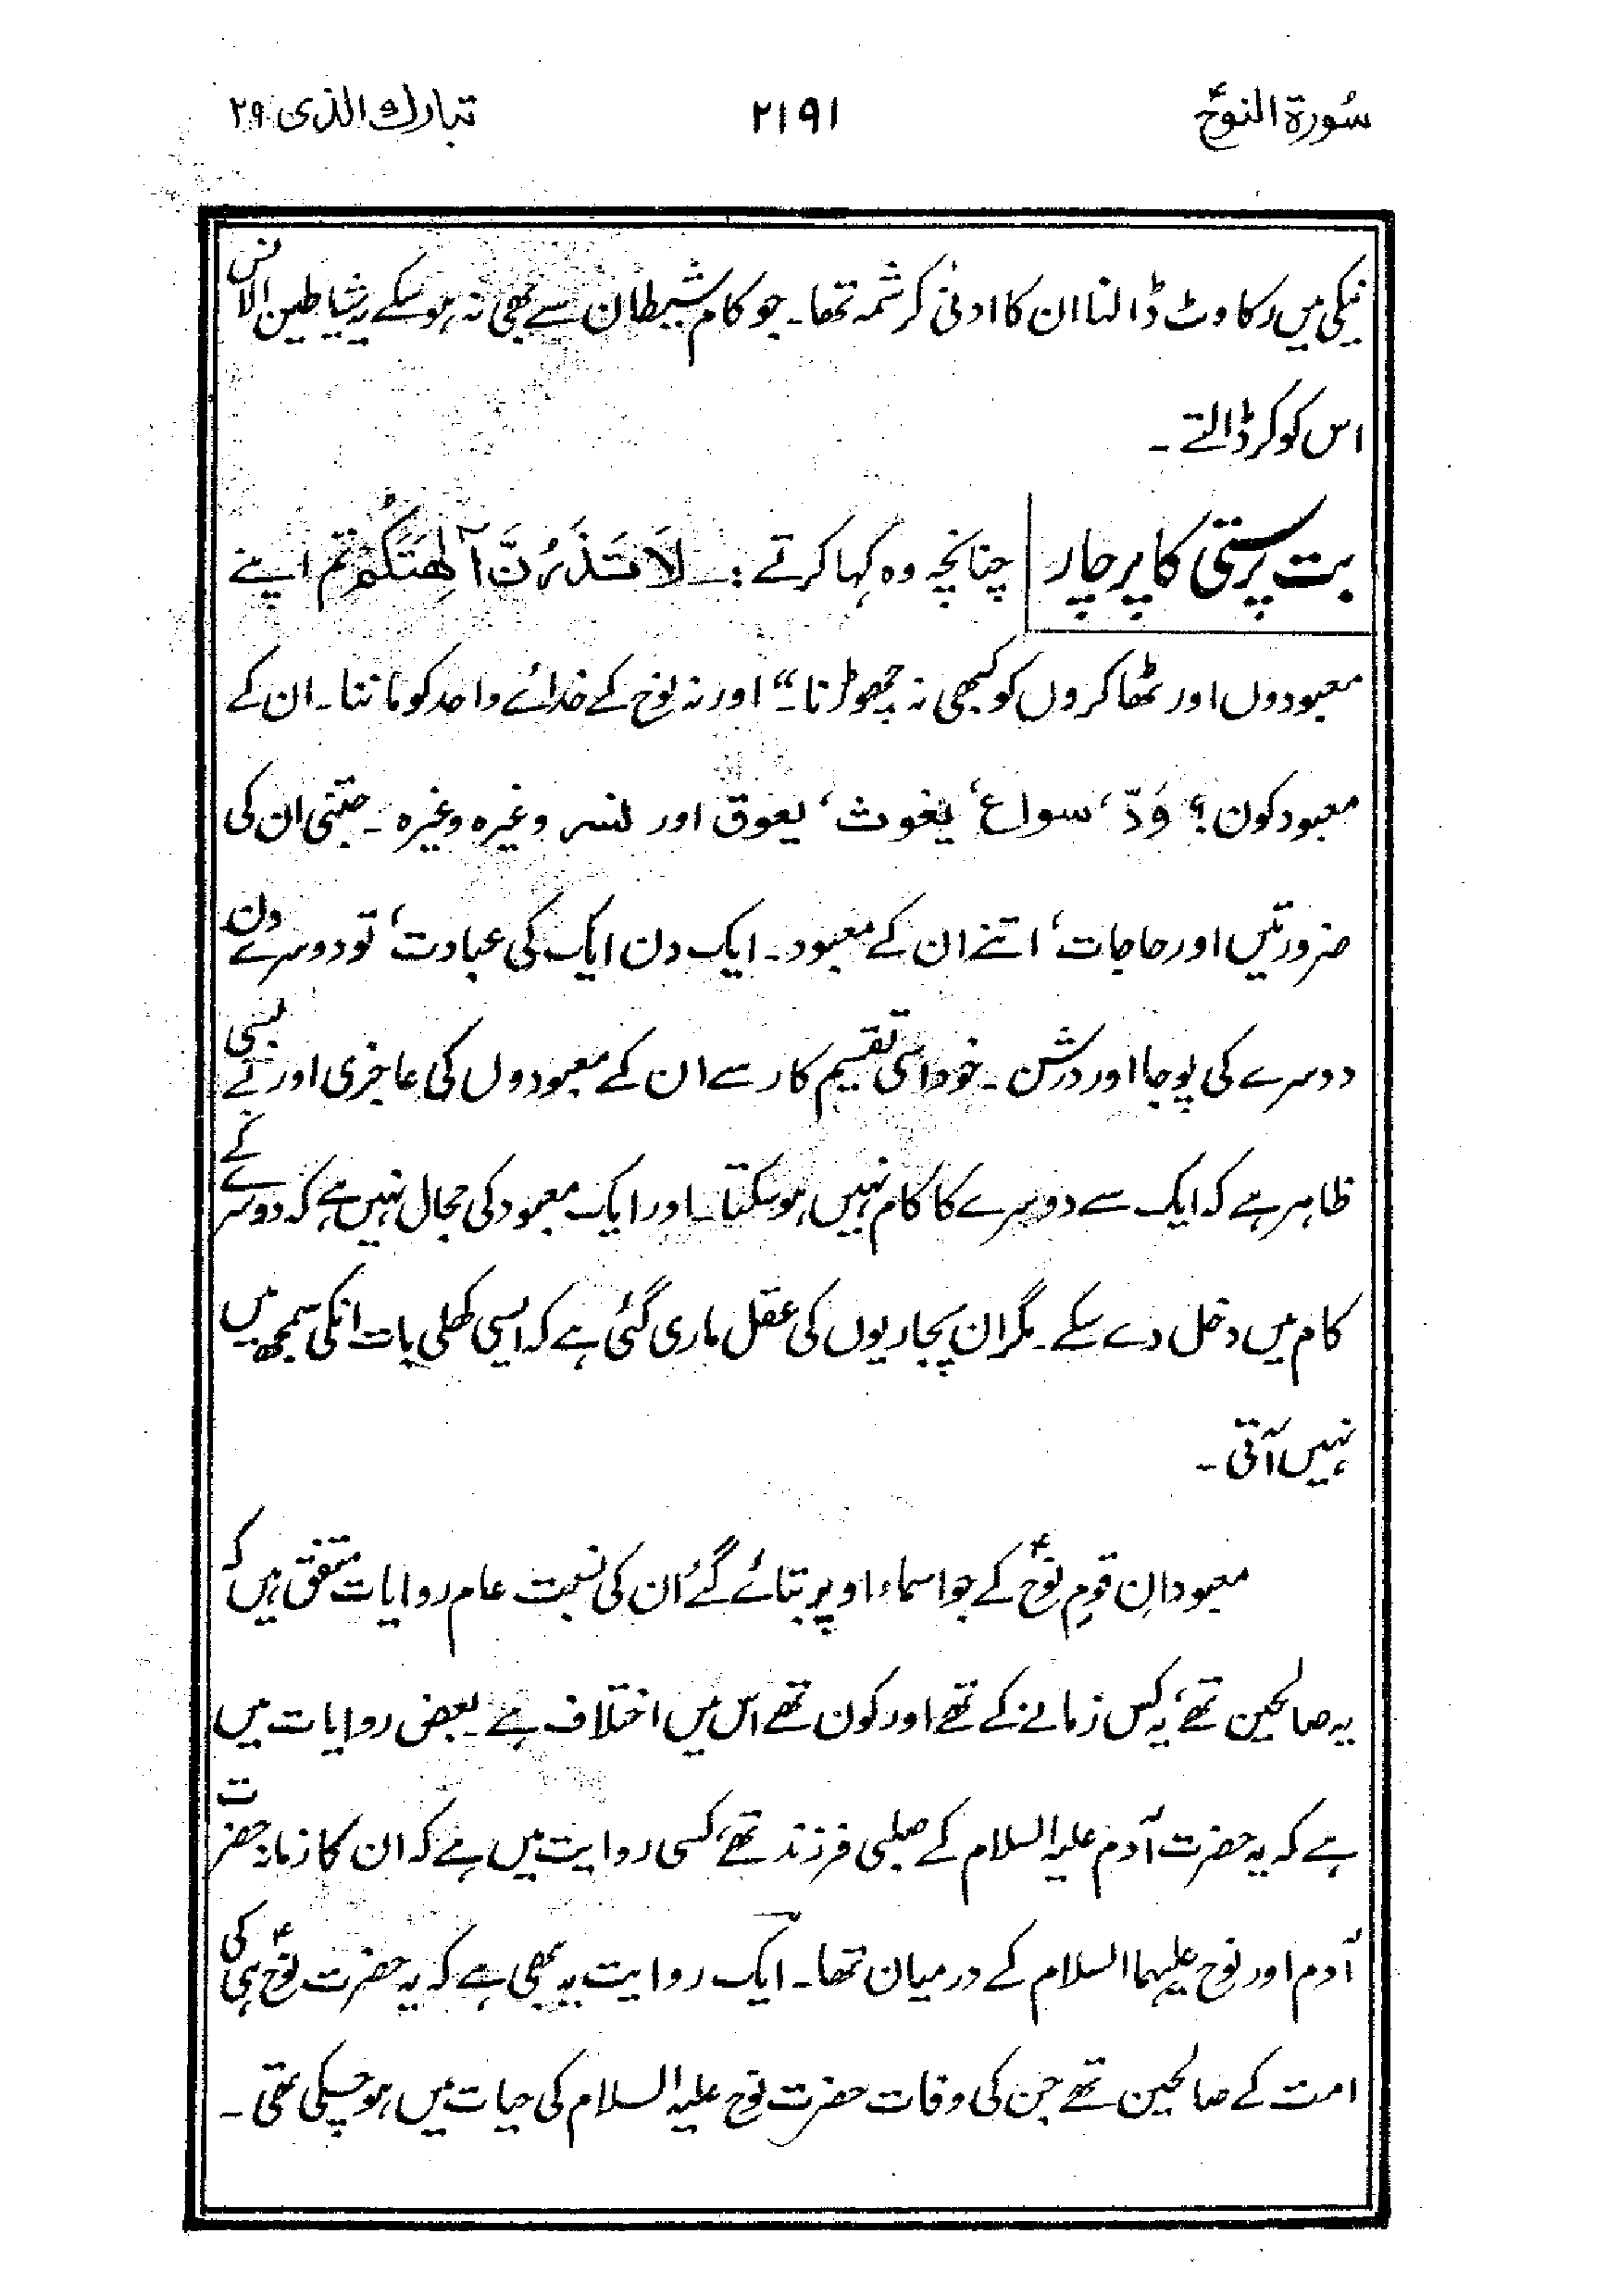 سُورة النوحؑ
۲۱۹۱
تبارك الذی ۲۹
نیکی میں رکاوٹ ڈالنا ان کا ادنیٰ کرشمہ تھا۔ جو کام شیطان سے بھی نہ ہو سکے یہ شیاطین الانس
اس کو کر ڈالتے ۔
بت پرستی کا پرچار چنانچہ وہ کہا کرتے : لَا تَذَرُنَّ آلِهَتَكُمْ تم اپنے
معبودوں اور ٹھاکروں کو کبھی نہ چھوڑنا۔“ اور نہ نوح کے خدائے واحد کو ماننا ۔ ان کے
معبود کون ؟ وَدّ، سواع، یغوث، یعوق اور نسر وغیرہ وغیرہ ۔ جتنی ان کی
ضرورتیں اور حاجات، اتنے ان کے معبود۔ ایک دن ایک کی عبادت، تو دوسرے دن
دوسرے کی پوجا اور درشن ۔ خود اسی تقسیم کار سے ان کے معبودوں کی عاجزی اور بے بسی
ظاہر ہے کہ ایک سے دوسرے کا کام نہیں ہو سکتا۔ اور ایک معبود کی مجال نہیں ہے کہ دوسرے کے
کام میں دخل دے سکے۔ مگر ان پجاریوں کی عقل ماری گئی ہے کہ ایسی کھلی بات انکی سمجھ میں
نہیں آتی ۔
معبودانِ قومِ نوحؑ کے جو اسماء اوپر بتائے گئے ان کی نسبت عام روایات متفق ہیں کہ
یہ صالحین تھے، یہ کس زمانے کے تھے اور کون تھے اس میں اختلاف ہے۔ بعض روایات میں
ہے کہ یہ حضرت آدم علیہ السلام کے صلبی فرزند تھے، کسی روایت میں ہے کہ ان کا زمانہ حضرت
آدم اور نوح علیہما السلام کے درمیان تھا۔ ایک روایت یہ بھی ہے کہ یہ حضرت نوحؑ ہی کی
امت کے صالحین تھے جن کی وفات حضرت نوح علیہ السلام کی حیات میں ہو چکی تھی ۔